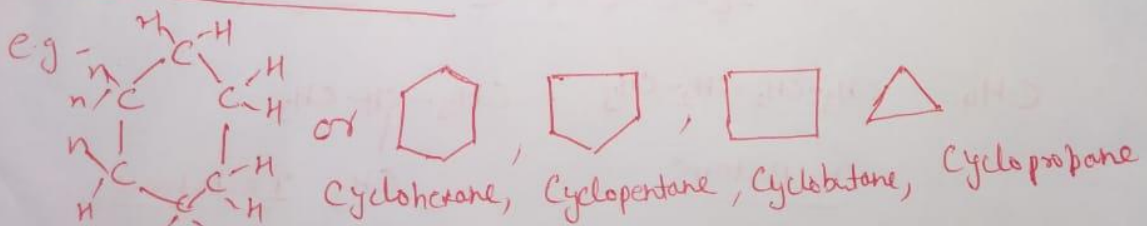 e.g -
H H
C
H H
H C C H
or
, ,
H H
C C
H H
C
Cyclohexane, Cyclopentane, Cyclobutane, Cyclopropane